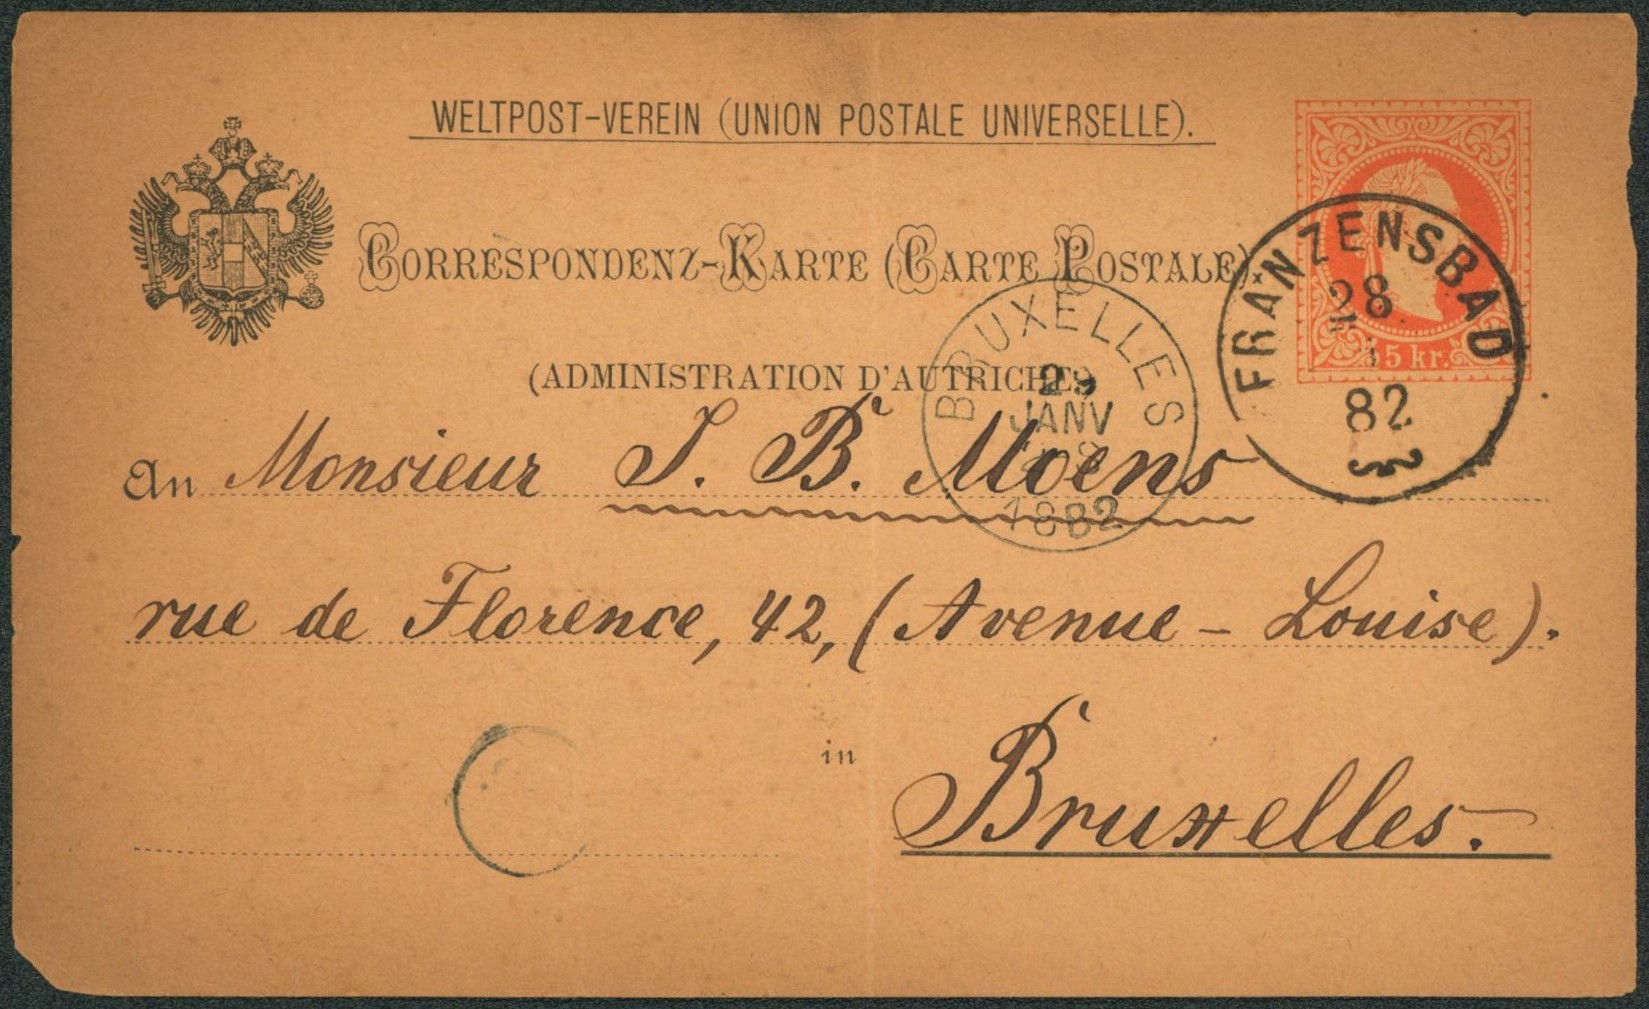 WELTPOST-VEREIN (UNION POSTALE UNIVERSELLE).
CORRESPONDENZ-KARTE (CARTE POSTALE)
(ADMINISTRATION D'AUTRICHE)
5 kr.
FRANZENSBAD
28
1
82
BRUXELLES
29
JANV
1882
An Monsieur J. B. Moens
rue de Florence, 42, (Avenue - Louise).
in Bruxelles.